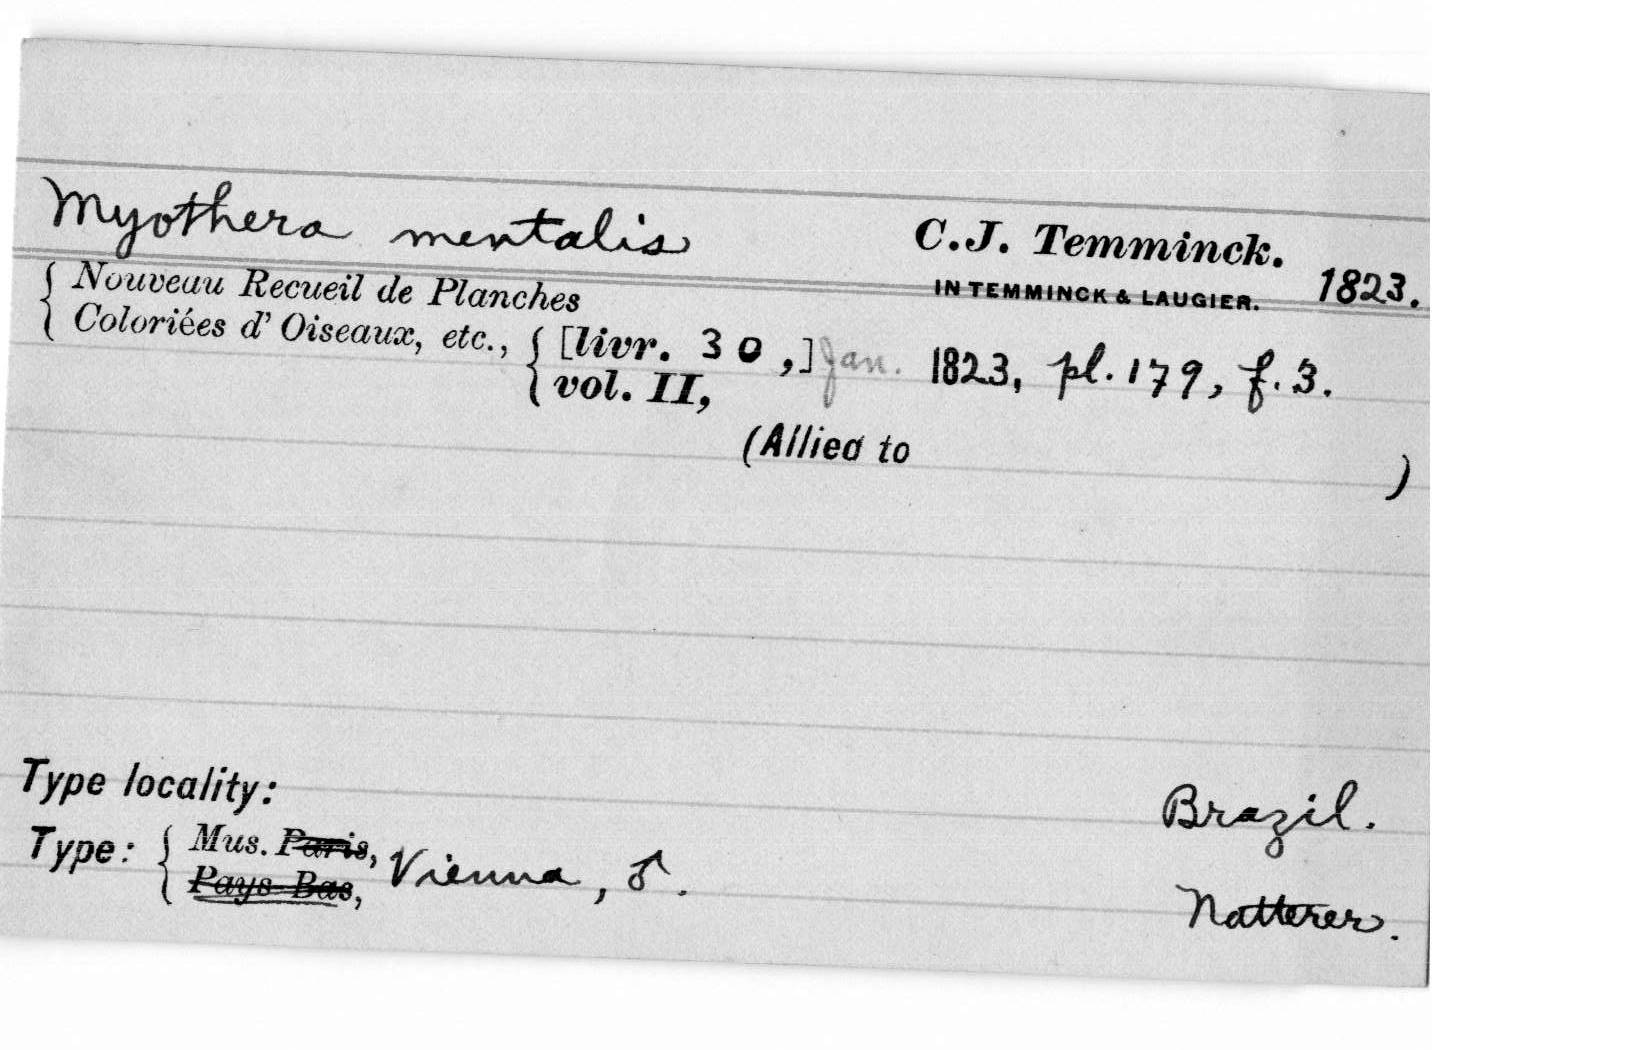 Myothera mentalis C.J. Temminck.
IN TEMMINCK & LAUGIER. 1823.
Nouveau Recueil de Planches
Coloriées d' Oiseaux, etc., [livr. 30,] Jan. 1823, pl. 179, f. 3.
vol. II,
(Allied to )
Type locality: Brazil.
Type: Mus. Paris, Vienna, ♂.
Pays-Bas,
Natterer.